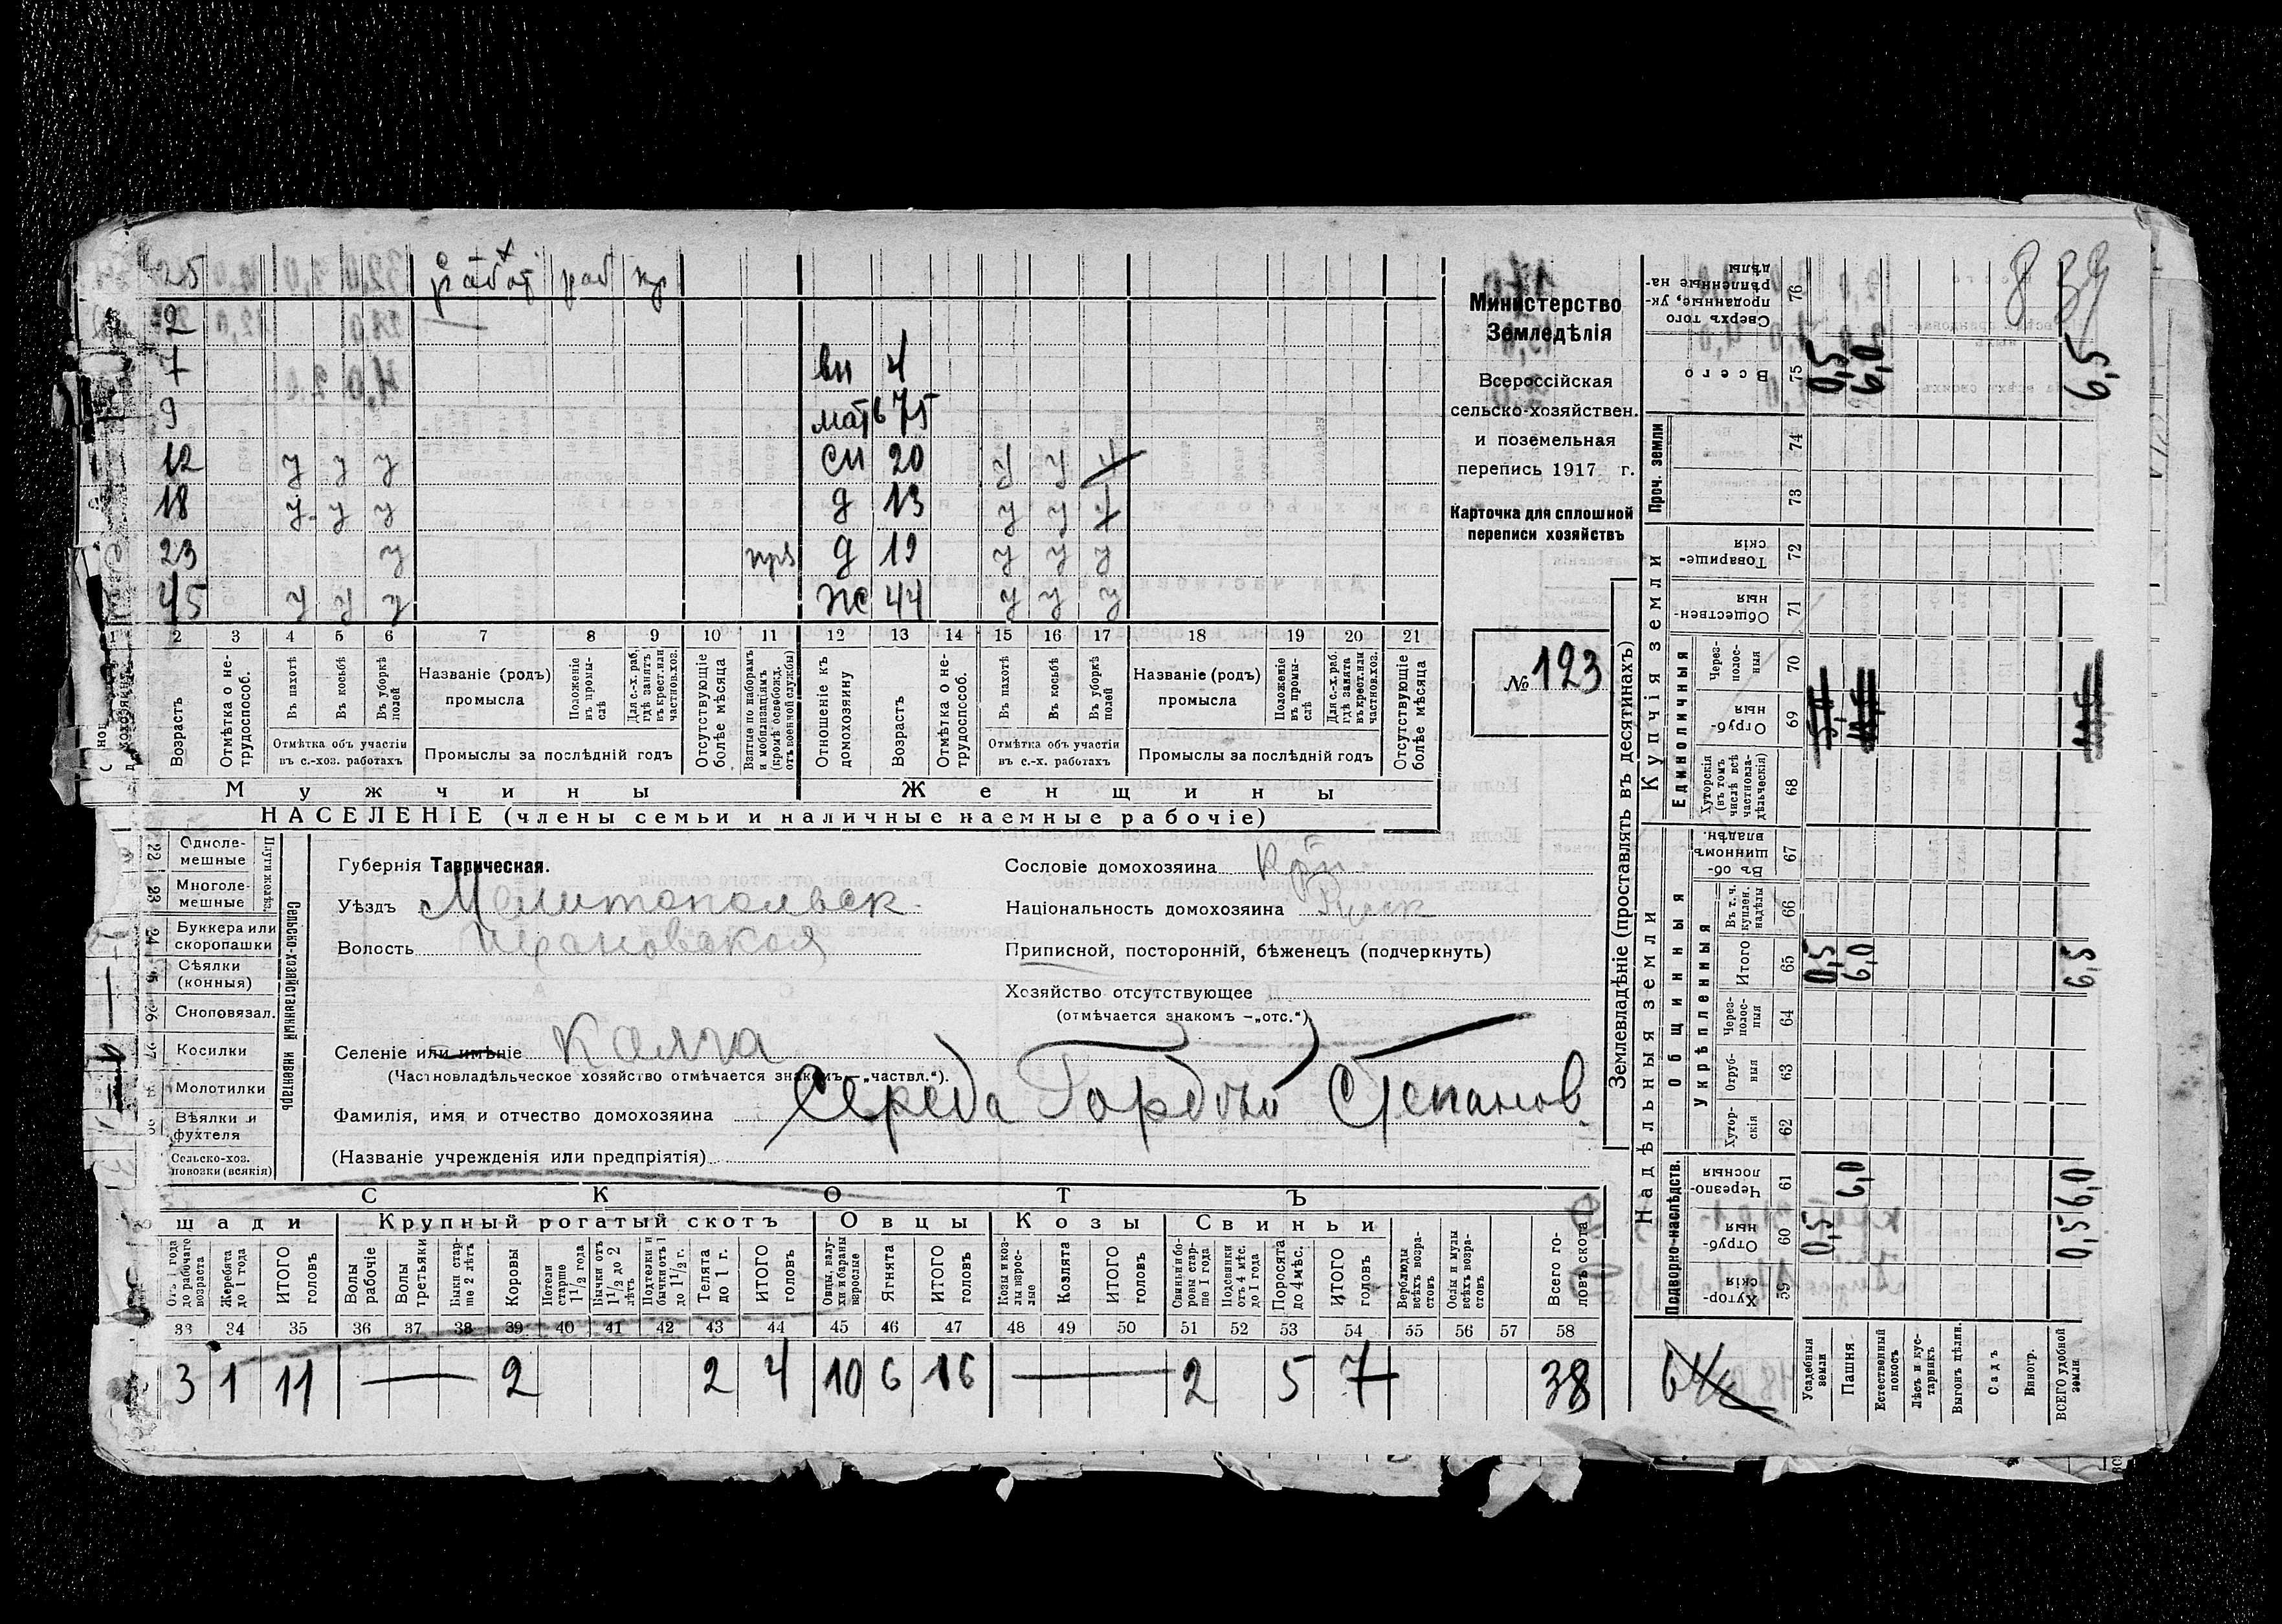 25 работ раб кр
2
7 вн 4
9 мать 75
12 у у у сн 20 у у у
18 у у у д 13 у у у
23 у д 19 у у у
45 у у у же 44 у у у
2 3 4 5 6 7 8 9 10 11 12 13 14 15 16 17 18 19 20 21
Возрастъ
Отмѣтка о не-
трудоспособ.
Въ пахотѣ
Въ косьбѣ
Въ уборкѣ
полей
Отмѣтка объ участіи
въ с.-хоз. работахъ
Названіе (родъ)
промысла
Положеніе
въ промы-
слѣ
Для с.-х. раб.
гдѣ занятъ
въ крест. или
частнов. хоз.
Промыслы за послѣдній годъ
Отсутствующіе
болѣе мѣсяца
Взятые по наборамъ
и мобилизаціямъ
(кромѣ освобожд.
отъ военной службы)
Отношеніе къ
домохозяину
Возрастъ
Отмѣтка о не-
трудоспособ.
Въ пахотѣ
Въ косьбѣ
Въ уборкѣ
полей
Отмѣтка объ участіи
въ с.-х. работахъ
Названіе (родъ)
промысла
Положеніе
въ промы-
слѣ
Для с.-х. раб.
гдѣ занята
въ крест. или
частнов. хоз.
Промыслы за послѣдній годъ
Отсутствующіе
болѣе мѣсяца
Мужчины Женщины
НАСЕЛЕНІЕ (члены семьи и наличные наемные рабочіе)
Министерство
Земледѣлія
Всероссійская
сельско-хозяйствен.
и поземельная
перепись 1917 г.
Карточка для сплошной
переписи хозяйствъ
№ 123
22 Одноле-
мешные
23 Многоле-
мешные
Плуги желѣз.
24 Буккера или
скоропашки
Сѣялки
(конныя)
26 Сноповязал.
27 Косилки
Молотилки
Вѣялки и
фухтеля
Сельско-хоз.
повозки (всякія)
Сельско-хозяйственный инвентарь
Губернія Таврическая.
Уѣздъ Мелитопольск.
Волость
Сословіе домохозяина Крѣп
Національность домохозяина Руск
Приписной, посторонній, бѣженецъ (подчеркнуть)
Хозяйство отсутствующее
(отмѣчается знакомъ —„отс.“)
Селеніе или имѣніе Калга
(Частновладѣльческое хозяйство отмѣчается знакомъ —„частвл.“).
Фамилія, имя и отчество домохозяина Середа Гордѣй Степанов.
(Названіе учрежденія или предпріятія)
СКОТЪ
шади Крупный рогатый скотъ Овцы Козы Свиньи
Отъ 1 года
до рабочаго
возраста
Жеребята
до 1 года
ИТОГО
головъ
Волы
рабочіе
Волы
третьяки
Быки стар-
ше 2 лѣтъ
Коровы
Нетели
старше
1 1/2 года
Бычки отъ
1 1/2 до 2
лѣтъ
Подтелки и
бычки отъ 1
до 1 1/2 г.
Телята
до 1 г.
ИТОГО
головъ
Овцы, валу-
хи и бараны
взрослые
Ягнята
ИТОГО
головъ
Козы и коз-
лы взрос-
лые
Козлята
ИТОГО
головъ
Свиньи и бо-
ровы стар-
ше 1 года
Подсвинки
отъ 4 мѣс.
до 1 года
Поросята
до 4 мѣс.
ИТОГО
головъ
Верблюды
всѣхъ возра-
стовъ
Ослы и мулы
всѣхъ возра-
стовъ
Всего го-
ловъ скота
33 34 35 36 37 38 39 40 41 42 43 44 45 46 47 48 49 50 51 52 53 54 55 56 57 58
3 1 11 — 2 2 4 10 6 16 — 2 5 7 38
839
Землевладѣніе (проставлять въ десятинахъ)
Надѣльныя земли Купчія земли Проч. земли
Подворно-наслѣдств.
Общинныя
Укрѣпленныя
Единоличныя
Хутор-
скія 59
Отруб-
ныя 60
Черезпо-
лосныя 61
Хутор-
скія 62
Отруб-
ныя 63
Через-
полос-
ныя 64
Итого 65
Въ т. ч.
куплен.
надѣлы 66
Въ об-
щинномъ
владѣн. 67
Хуторскія
(въ томъ
числѣ всѣ
частновла-
дѣльческія) 68
Отруб-
ныя 69
Через-
полос-
ныя 70
Обществен-
ныя 71
Товарище-
скія 72
73
74
Всего 75
Сверхъ того
проданные, ук-
рѣпленные на-
дѣлы 76
Усадебныя
земли 0,5 0,5 0,5
Пашня 6,0 6,0 6,0
Естественный
покосъ
Лѣсъ и кус-
тарникъ
Выгонъ дѣлин.
Садъ
Виногр.
ВСЕГО удобной
земли 0,5 6,0 6,5 6,5